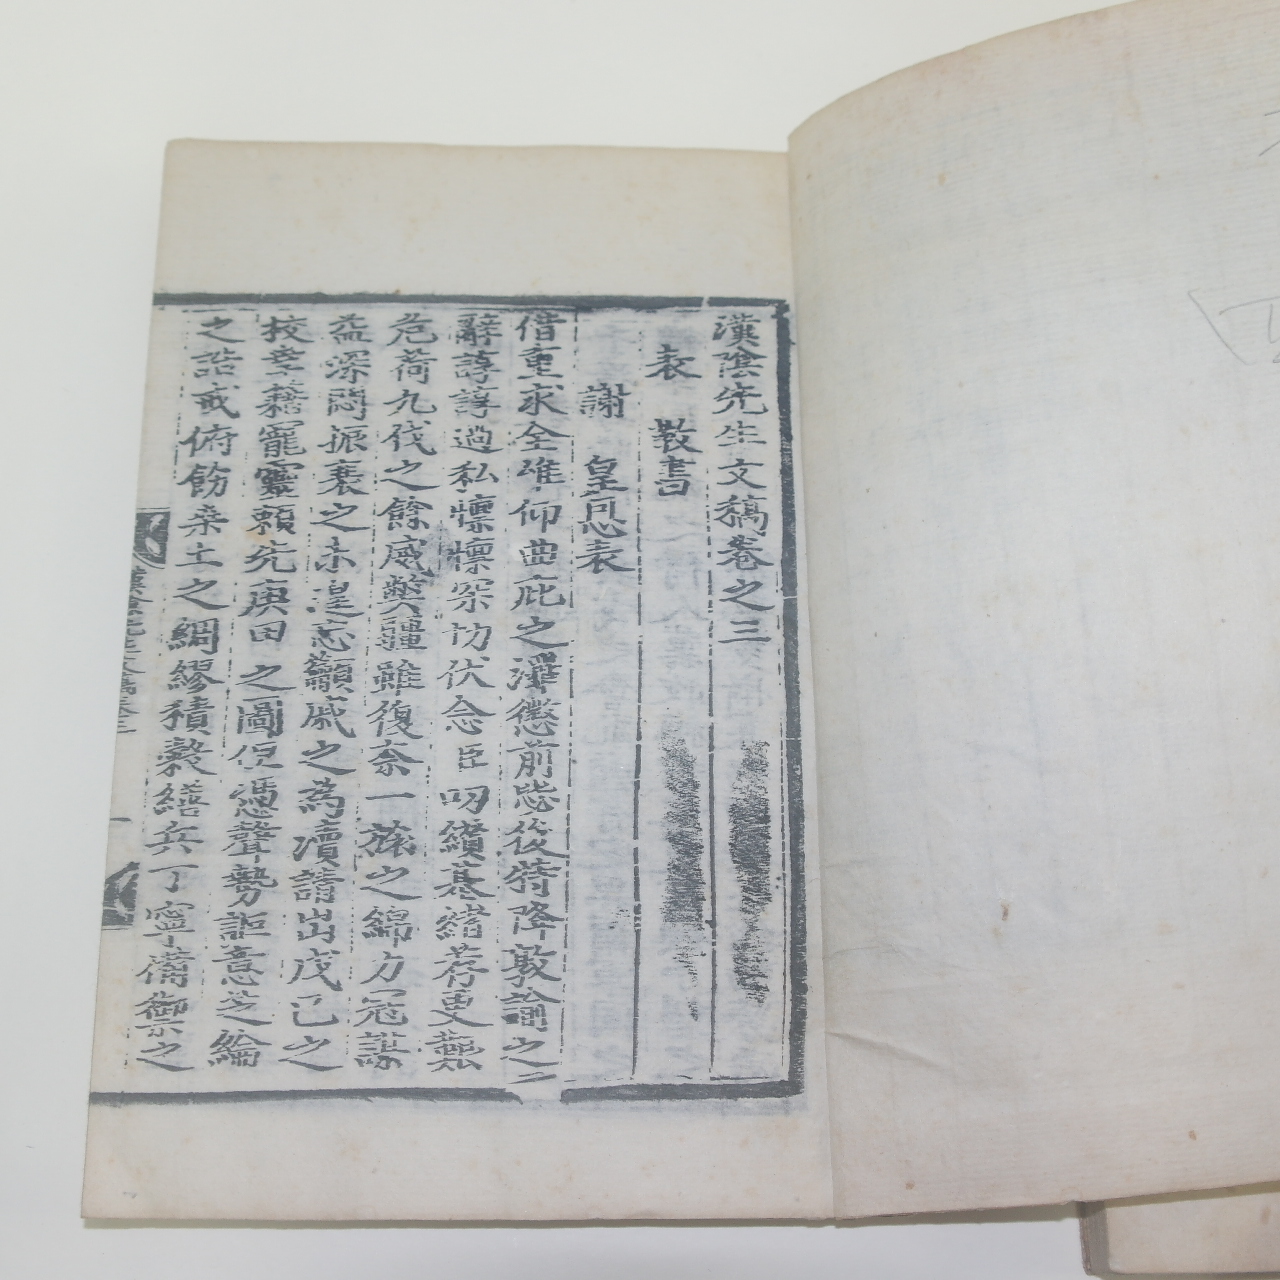 漢陰先生文稿卷之三
表 敎書
謝 皇恩表
借重求全唯仰曲庇之澤懲前毖後特降敦諭之
辭諄諄過私懍懍深切伏念臣叨纘基緖荐更艱
危荷九伐之餘威弊疆雖復奈一旅之綿力冠謀
益深悶振衰之未遑忘籲戚之爲瀆請出戊己之
校幸藉寵靈賴先庚田之圖佢憑聲勢詎意芝綸
之誥戒俯飭桑土之綢繆積穀繕兵丁寧備禦之
漢陰先生文稿卷三
一